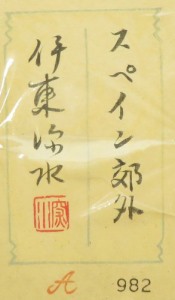 スペイン郊外
伊東深水
A 982